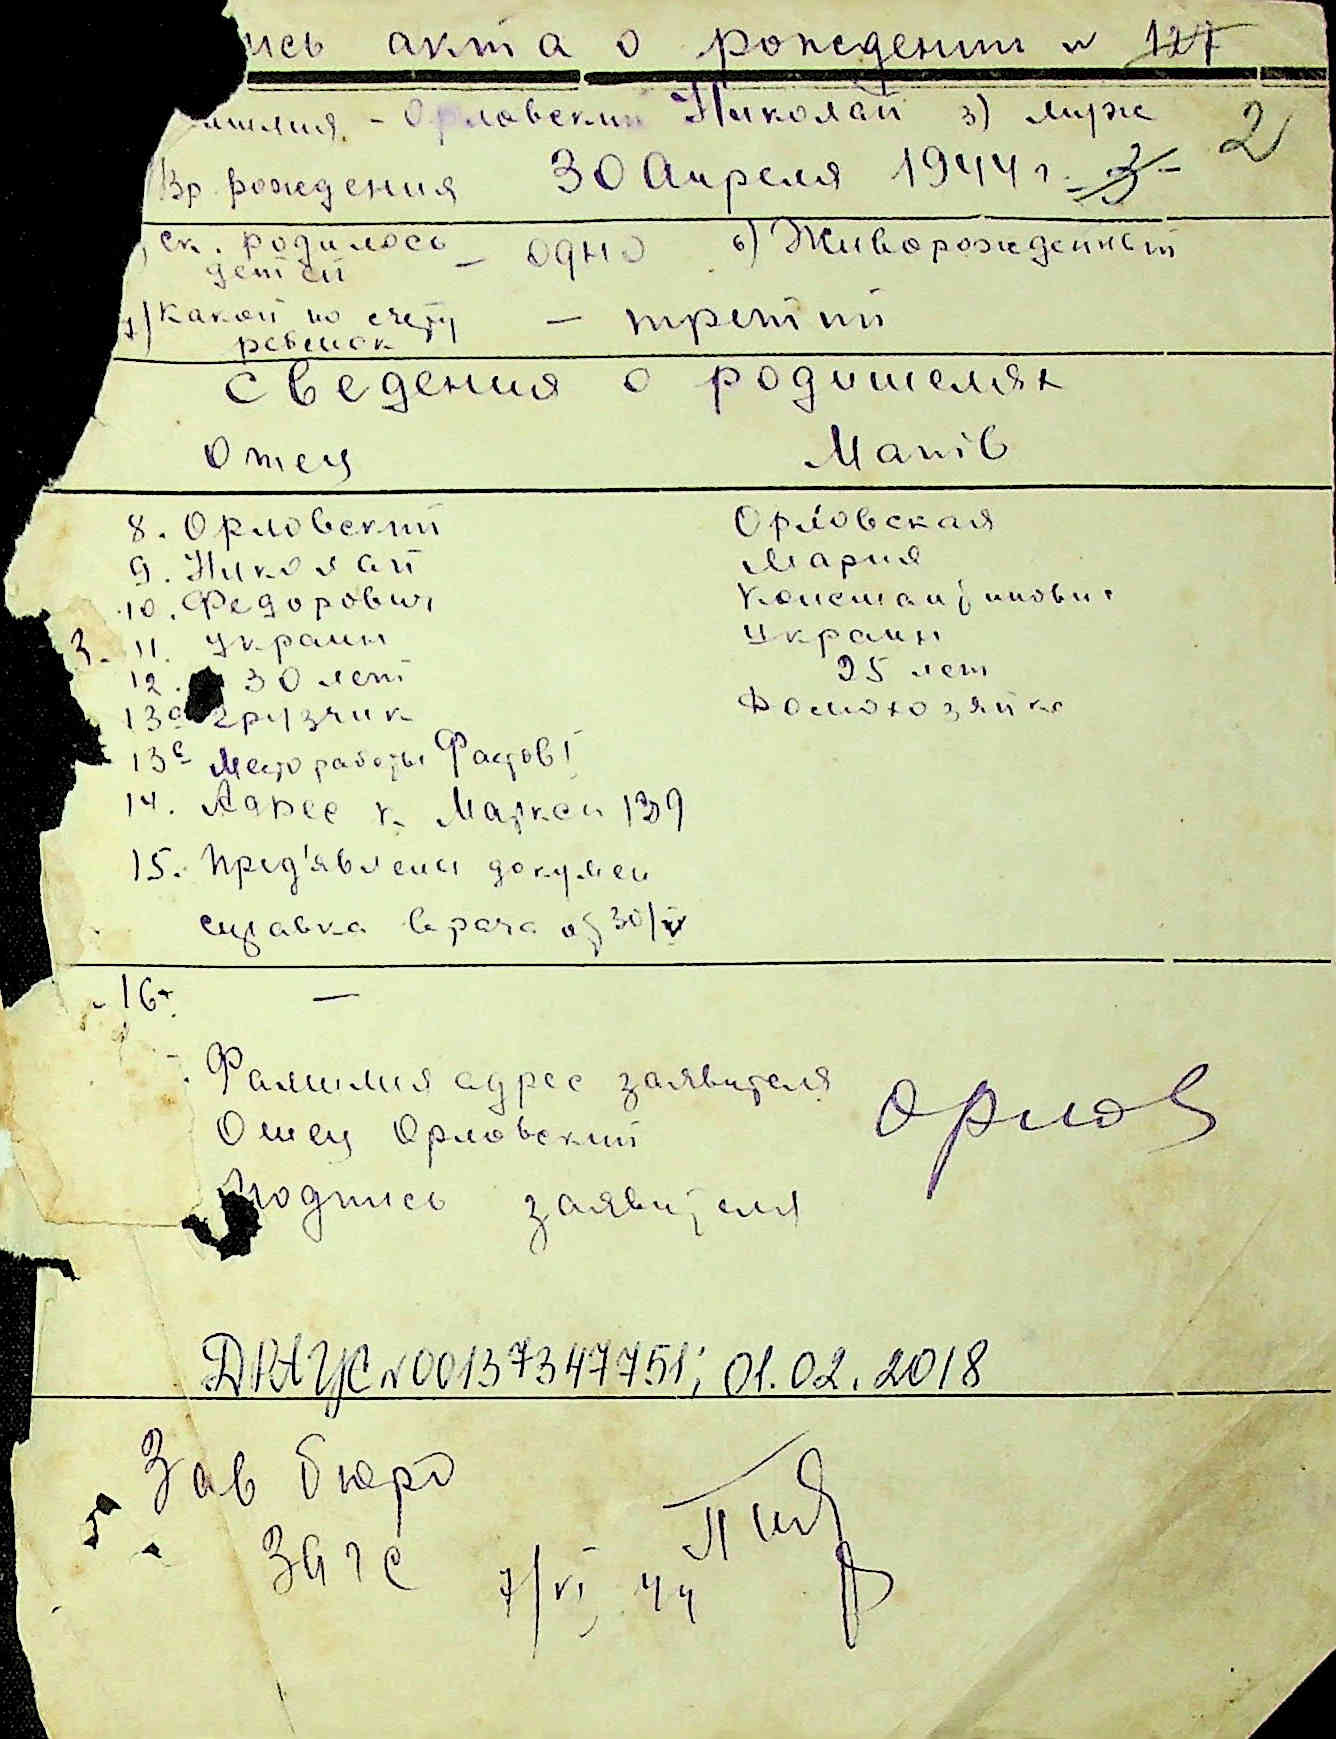 ись акта о рождении N 127
милия - Орловский Николай 3) мужс 2
Вр рождения 30 Апреля 1944 г. -3-
ск. родилось - одно 6) Живорожденный
детей
7) Какой по счету - третий
ребенок
Сведения о родителях
Отец Маті
8. Орловский Орловская
9. Николай Мария
10. Федорович Константинович
3. 11. Украин Украин
12. 30 лет 25 лет
13а грузчик Домохозяйка
13с Место работы
14. Адрес К. Маркса 139
15. Пред'явлены докумен
справка врача от 30/IV
16. —
Фамилия адрес заявителя Орлов
Отец Орловский
Подпись заявителя
ДРАЦС N 00137347751; 01.02.2018
Зав бюро
Загс 7/VI 44